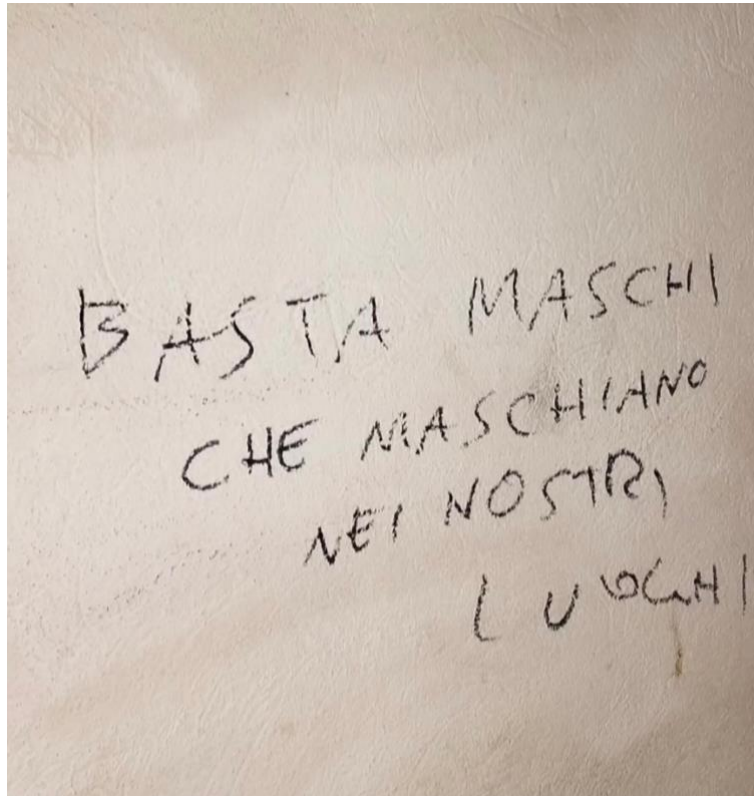 BASTA MASCHI
CHE MASCHIANO
NEI NOSTRI
LUOGHI